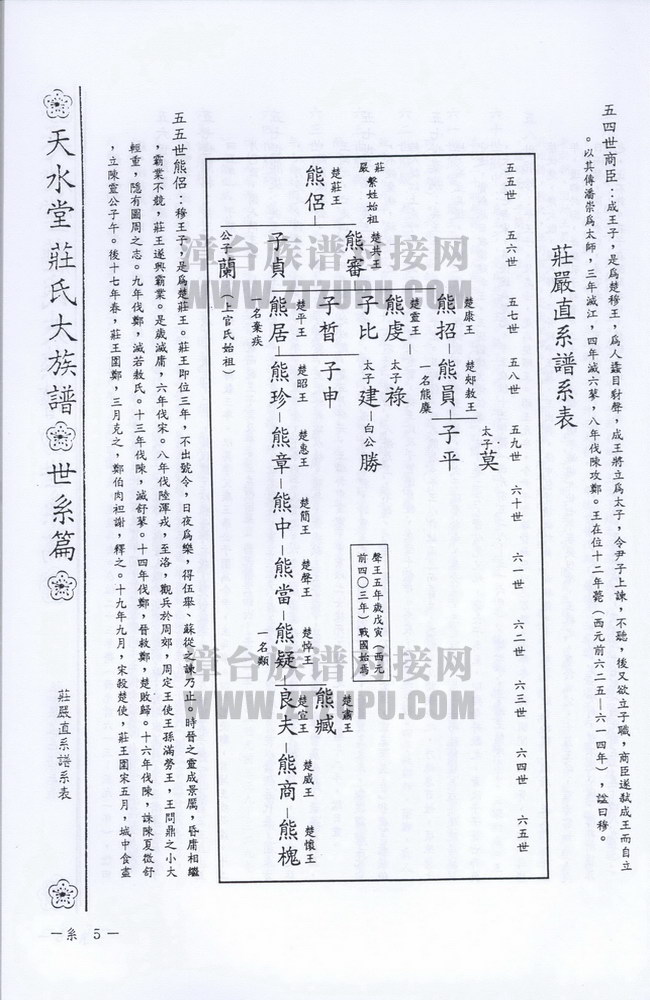 五四世商臣：成王子，是爲楚穆王，爲人蠭目豺聲，成王將立爲太子，令尹子上諫，不聽，後又欲立子職，商臣遂弒成王而自立
。以其傳潘崇爲太師，三年滅江，四年滅六蓼，八年伐陳攻鄭。王在位十二年薨（西元前六二五—六一四年），謚曰穆。
莊嚴直系譜系表
五五世
五六世
五七世
五八世
五九世
六十世
六一世
六二世
六三世
六四世
六五世
太子莫
楚康王
熊招
楚郟敖王
熊員
一名熊麇
子平
楚靈王
熊虔
太子祿
子比
太子建
白公勝
楚共王
熊審
莊嚴繫姓始祖
楚莊王
熊侶
子貞
公子蘭（上官氏始祖）
子晳
子申
楚平王
熊居
一名棄疾
楚昭王
熊珍
楚惠王
熊章
楚簡王
熊中
楚聲王
熊當
楚悼王
熊疑
一名類
楚肅王
熊臧
楚宣王
良夫
楚威王
熊商
楚懷王
熊槐
聲王五年歲戊寅（西元
前四〇三年）戰國始焉
五五世熊侶：穆王子，是爲楚莊王。莊王即位三年，不出號令，日夜爲樂，得伍舉、蘇從之諫乃止。時晉之靈成景厲，昏庸相繼
，霸業不競，莊王遂興霸業。是歲滅庸，六年伐宋。八年伐陸渾戎，至洛，觀兵於周郊，周定王使王孫滿勞王，王問鼎之小大
輕重，隱有圖周之志。九年伐鄭，滅若敖氏。十三年伐陳，滅舒蓼。十四年伐鄭，晉救鄭，楚敗歸。十六年伐陳，誅陳夏徵舒
，立陳靈公子午。後十七年春，莊王圍鄭，三月克之，鄭伯肉袒謝，釋之。十九年九月，宋殺楚使，莊王圍宋五月，城中食盡
天水堂 莊氏大族譜 世系篇
莊嚴直系譜系表
—系 5—
漳台族谱对接网
WWW.ZTZUPU.COM
漳台族谱对接网
WWW.ZTZUPU.COM